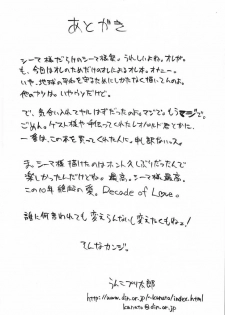 あとがき
シーマ様だらけのシーマ様本。うれしいよね。オレが。
も、今回はオレのためだけのオレによるオレ本。オナニー。
いや、地球の平和を守るためにしかたなく描いてんのよ。
他のヤツは。いやマジで。
で、気合い入れてヤルはずだったのよ。マジで。もうマジで。
ごめん。ゲスト様や手伝ってくれたレオパルド君とかに。
一番は、この本を買ってくれた人に。申し訳ないッス。
ま、シーマ様描けたのはホント久しぶりだったんで
楽しかったんだけどね。最高。シーマ様最高。
この10年越しの愛。Decade of Love。
誰に何言われても変えらんないし変えたくもねェ!
てんなカンジ。
うんこブリ太郎
http://www.din.or.jp/~kanata/index.html
kanata@din.or.jp